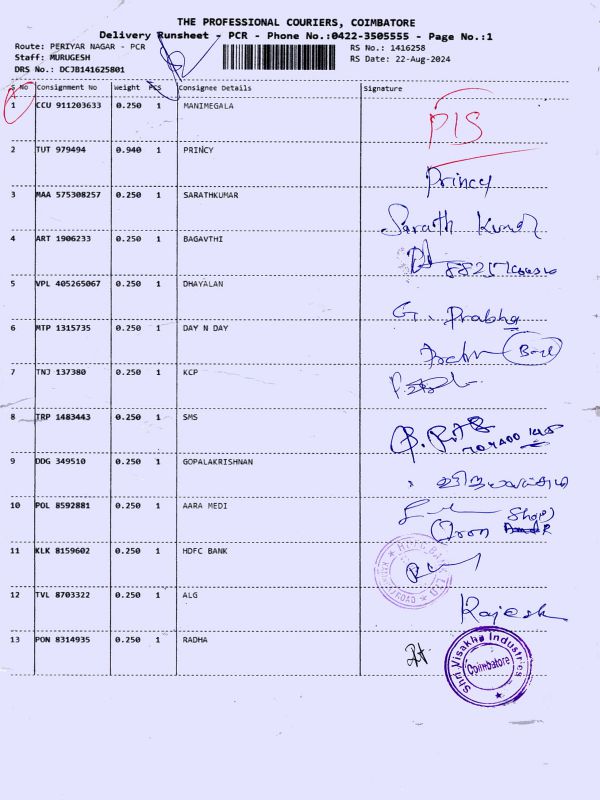 THE PROFESSIONAL COURIERS, COIMBATORE
Delivery Runsheet - PCR - Phone No.:0422-3505555 - Page No.:1
Route: PERIYAR NAGAR - PCR
Staff: MURUGESH
DRS No.: DCJB141625801
RS No.: 1416258
RS Date: 22-Aug-2024
S No Consignment No Weight PCS Consignee Details Signature
1 CCU 911203633 0.250 1 MANIMEGALA
PIS
2 TUT 979494 0.940 1 PRINCY
Princy
3 MAA 575308257 0.250 1 SARATHKUMAR
Sarath Kumar
4 ART 1906233 0.250 1 BAGAVTHI
5 VPL 405265067 0.250 1 DHAYALAN
G. Prabha
6 MTP 1315735 0.250 1 DAY N DAY
7 TNJ 137380 0.250 1 KCP
8 TRP 1483443 0.250 1 SMS
9 DDG 349510 0.250 1 GOPALAKRISHNAN
10 POL 8592881 0.250 1 AARA MEDI
Shop
11 KLK 8159602 0.250 1 HDFC BANK
HDFC BANK LTD
12 TVL 8703322 0.250 1 ALG
Rajesh
13 PON 8314935 0.250 1 RADHA
Shri Visakha Industries
Coimbatore